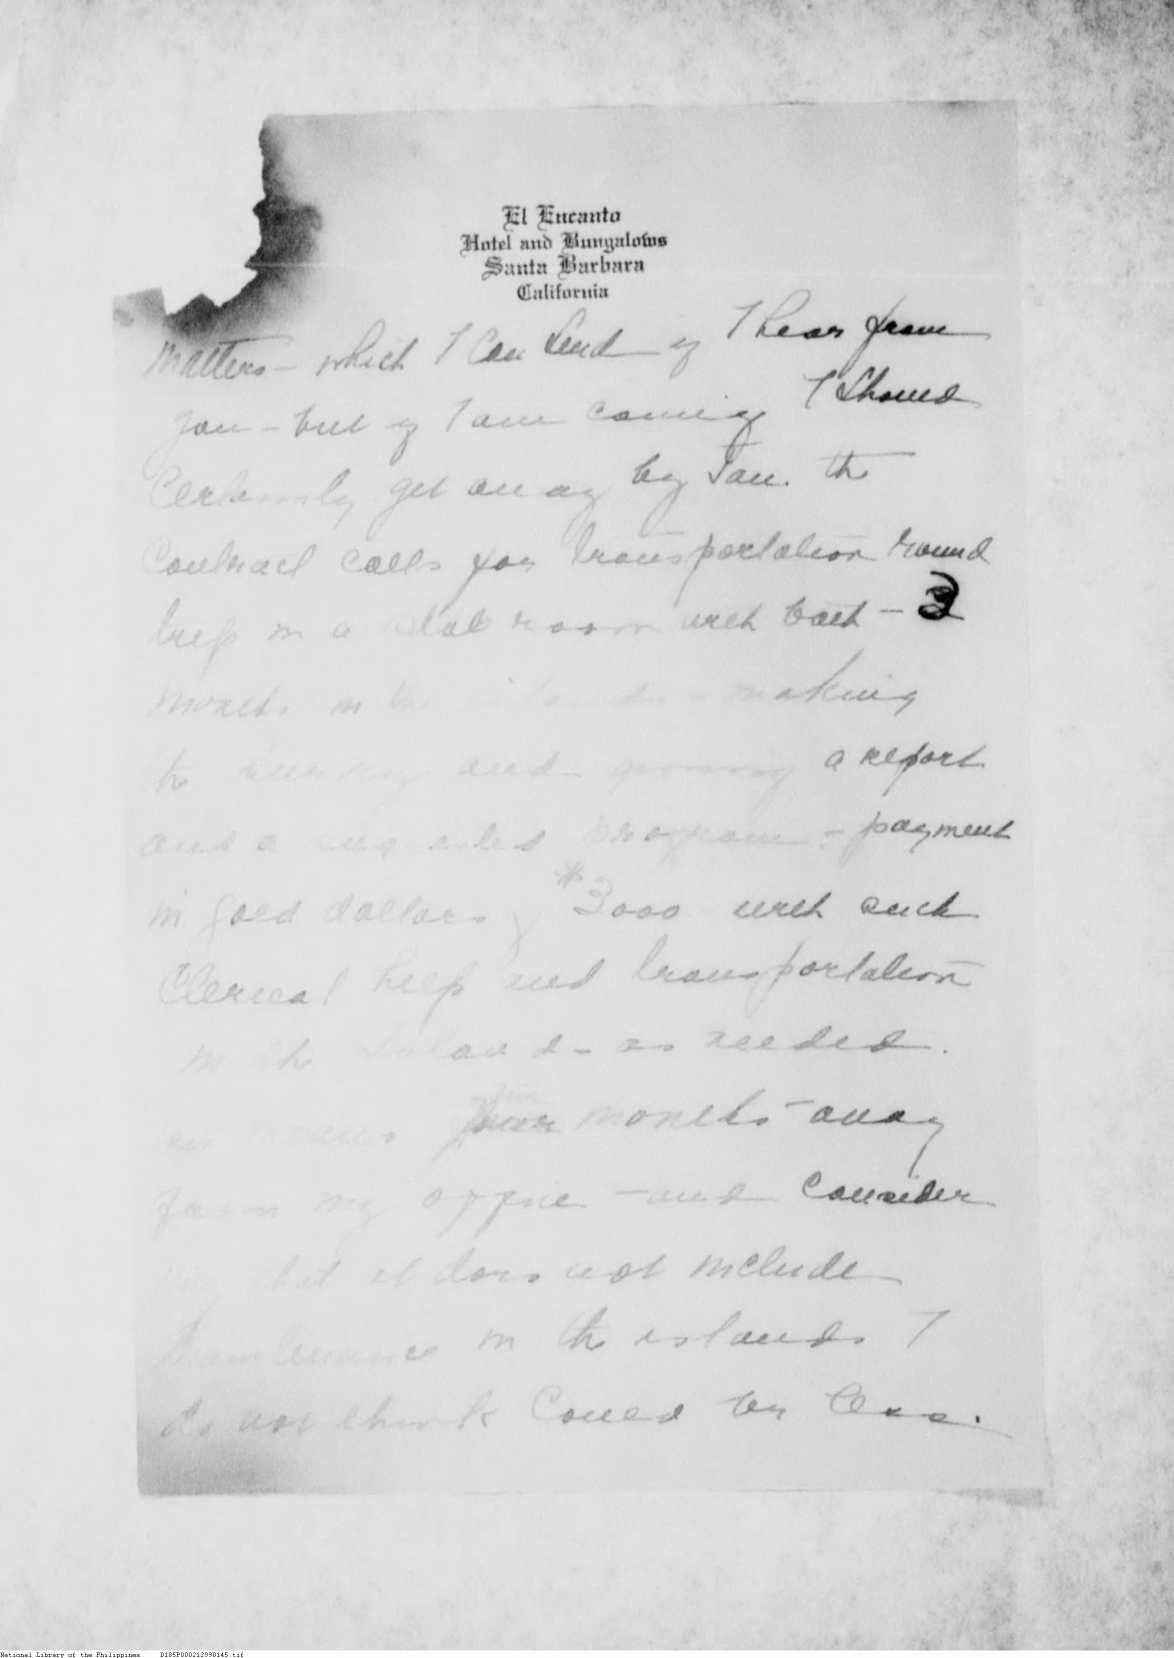 El Encanto
Hotel and Bungalows
Santa Barbara
California
matters – which I can send if I hear from
you – but if I am coming I should
certainly get away by Jan. the
contract calls for transportation round
trip in a stat room with bath – 3
months in the islands – making
the survey and giving a report
and a suggested program – payment
in gold dollars of $3000 with such
clerical help and transportation
in the islands – as needed.
means four months – away
from my office – and consider
ing that it does not include
maintenance in the islands I
do not think could be less.
National Library of the Philippines D185P000212990145.tif